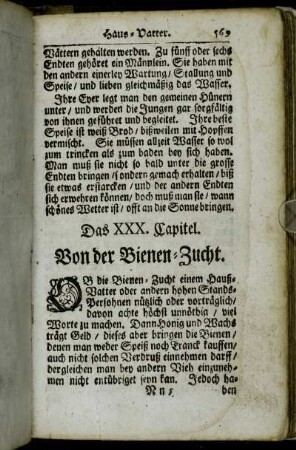 Haus-Vatter. 569
Vättern gehalten werden. Zu fünff oder sechs
Endten gehöret ein Männlein. Sie haben mit
den andern einerley Wartung/ Stallung und
Speise/ und lieben gleichmäßig das Wasser.
Ihre Eyer legt man den gemeinen Hünern
unter/ und werden die Jungen gar sorgfältig
von ihnen geführet und begleitet. Ihre beste
Speise ist weiß Brod/ bißweilen mit Hopffen
vermischt. Sie müssen allzeit Wasser so wol
zum trincken als zum baden bey sich haben.
Man muß sie nicht so bald unter die grosse
Endten bringen/ sondern gemach erhalten/ biß
sie etwas erstarcken/ und der andern Endten
sich erwehren können/ doch muß man sie/ wann
schönes Wetter ist/ offt an die Sonne bringen.
Das XXX. Capitel.
Von der Bienen-Zucht.
OB die Bienen-Zucht einem Hauß-
Vatter oder andern hohen Stands-
Persohnen nützlich oder vorträglich/
davon achte höchst unnöthig/ viel
Worte zu machen. Dann Honig und Wachs
trägt Geld/ dieses aber bringen die Bienen/
denen man weder Speiß noch Tranck kauffen/
auch nicht solchen Verdruß einnehmen darff/
dergleichen man bey andern Vieh einzuneh-
men nicht entübriget seyn kan. Jedoch ha-
Nn 5 ben